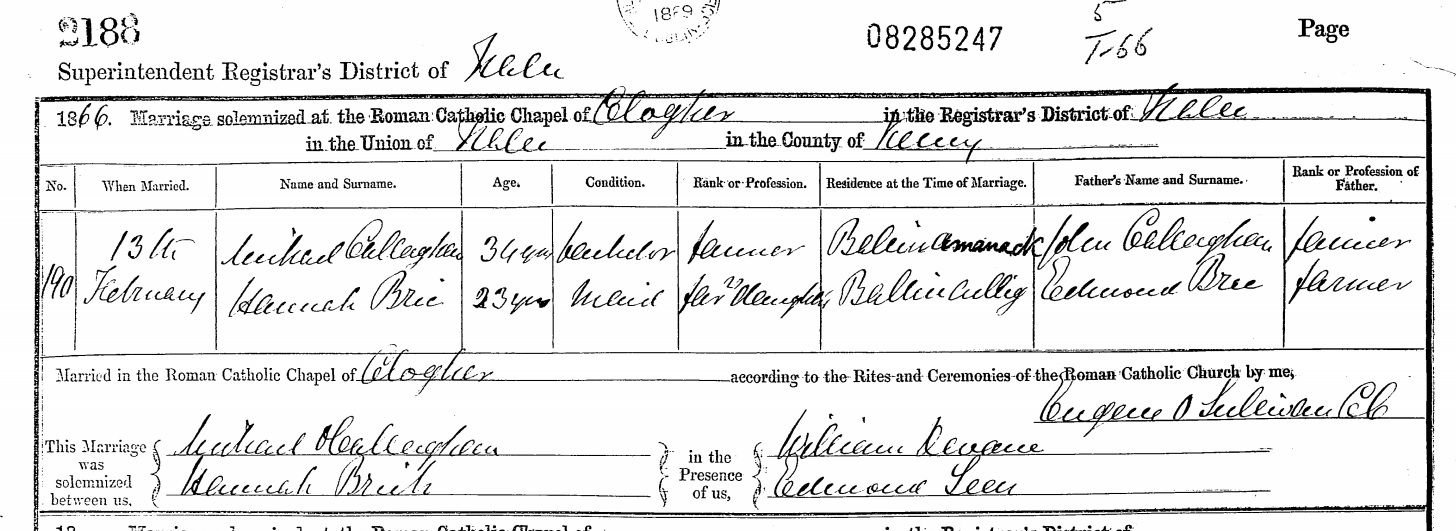 2188
1869
08285247
5
T-66
Page
Superintendent Registrar's District of Tralee
1866. Marriage solemnized at the Roman Catholic Chapel of Clogher in the Registrar's District of Tralee
in the Union of Tralee in the County of Kerry
No. When Married. Name and Surname. Age. Condition. Rank or Profession. Residence at the Time of Marriage. Father's Name and Surname. Rank or Profession of Father.
190 13th February
Michael Callaghan 34 yrs bachelor farmer John Callaghan farmer
Hannah Bric 23 yrs Maid farrs daughter Ballincullig Edmond Bric farmer
Married in the Roman Catholic Chapel of Clogher according to the Rites and Ceremonies of the Roman Catholic Church by me,
Eugene O Sullivan CC
This Marriage was solemnized between us, Michael O Callaghan
Hannah Brick
in the Presence of us, William Devane
Edmond Leen